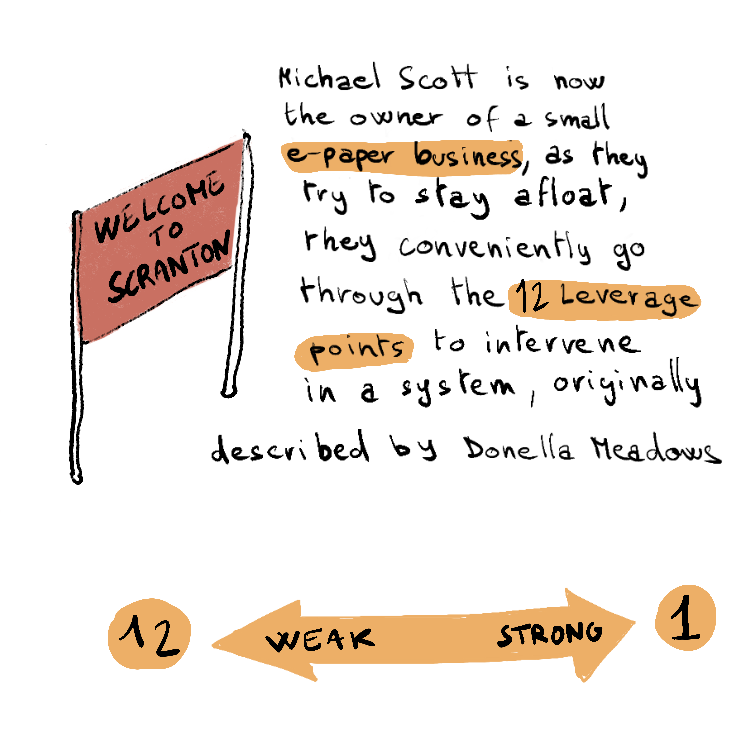 WELCOME
TO
SCRANTON
Michael Scott is now
the owner of a small
e-paper business, as they
try to stay afloat,
they conveniently go
through the 12 Leverage
points to intervene
in a system, originally
described by Donella Meadows
12 WEAK STRONG 1